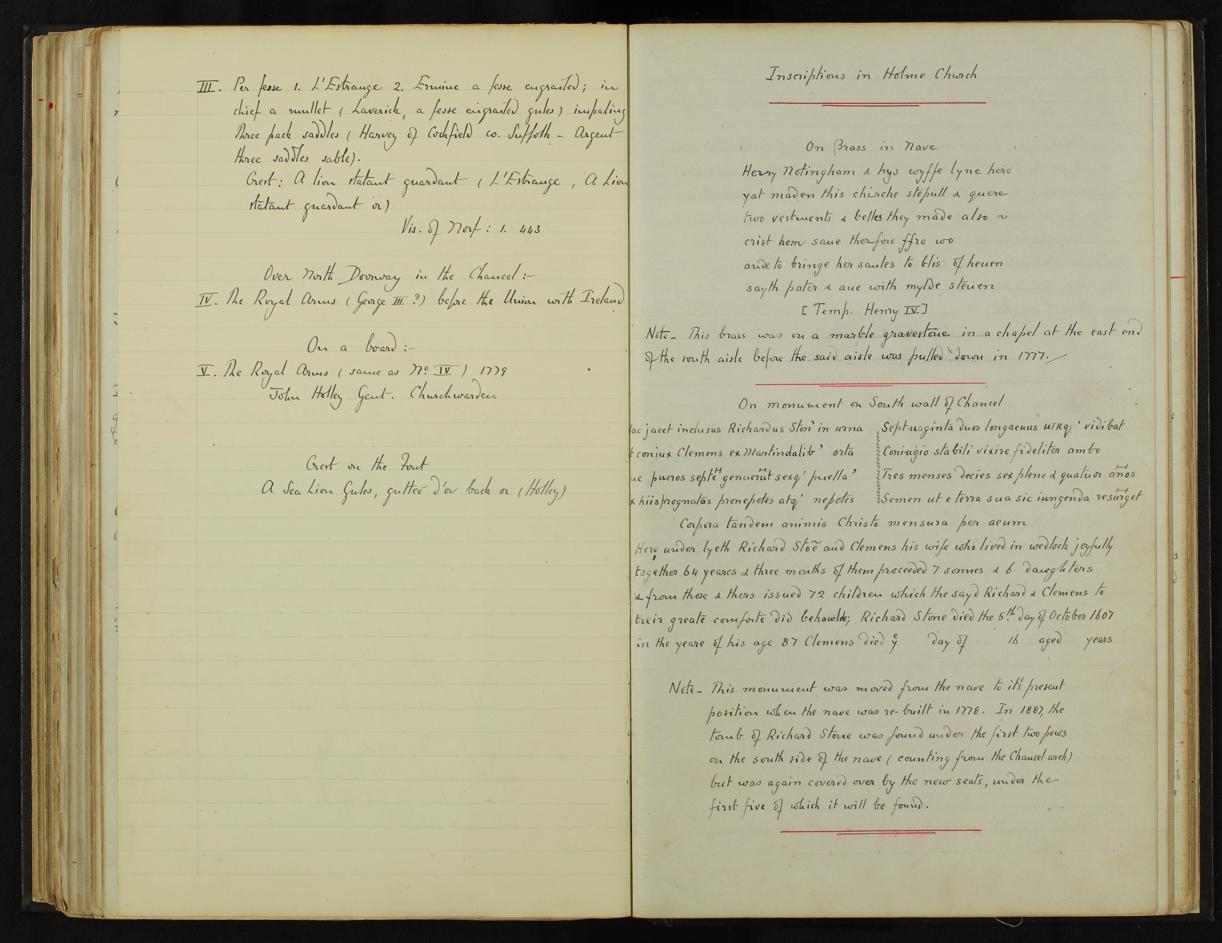 III. Per fesse 1. L'Estrange 2. Ermine a fesse engrailed; in
chief a mullet (Laverick, a fesse engrailed gules) impaling
three pack saddles (Harvey of Cockfield co. Suffolk - Argent
three saddles sable).
Crest: A lion statant guardant (L'Estrange, A Lion
statant guardant or)
Vis. of Norf: 1. 443
Over North Doorway in the Chancel:-
IV. The Royal Arms (George III?) before the Union with Ireland
On a board:-
V. The Royal Arms (same as No. IV) 1779
John Holley Gent. Churchwarden
Crest on the Font
A Sea Lion Gules, guttée d'or back or (Holley)
Inscriptions in Holme Church
On Brass in Nave
Henry Notingham & hys wyffe lyne here
yat maden this chirche stepull & quere
two vestments & belles they made also
crist hem saue therfore ffro wo
ande to bringe her saules to blis of heuen
sayth pater & aue with mylde steuen
[Temp. Henry IV]
Note - This brass was on a marble gravestone in a chapel at the east end
of the south aisle before the said aisle was pulled down in 1777.
On monument on South wall of Chancel
ac jacet inclusus Richardus Ston' in urna Septuaginta duos longaeuus utRq' vidibat
t coniux Clemens ex Martindalib' orta Coniugio stabili vixire fideliter ambo
ue pueros septē genuerūt sexq' puella' Tres menses decies sex plene & quatuor an̄os
x hiis prognatos pronepotes atq' nepotes Semen ut e terra sua sic iungenda resurget
Corpora tandem animis Christo mensura per aeum
Here under lyeth Richard Stoẽ and Clemens his wife who lived in wedlock joyfully
together 64 yeares & three months of them proceeded 7 sonnes & 6 daughters
& from those & thers issued 72 children which the sayd Richard & Clemens to
their greate comforte did behoulde; Richard Stone died the 5th day of October 1607
in the yeare of his age 87 Clemens died ye day of 16 aged years
Note - This monument was moved from the nave to it's present
position when the nave was re-built in 1778. In 1887, the
tomb of Richard Stone was found under the first two pews
on the south side of the nave (counting from the Chancel arch)
but was again covered over by the new seats, under the
first five of which it will be found.